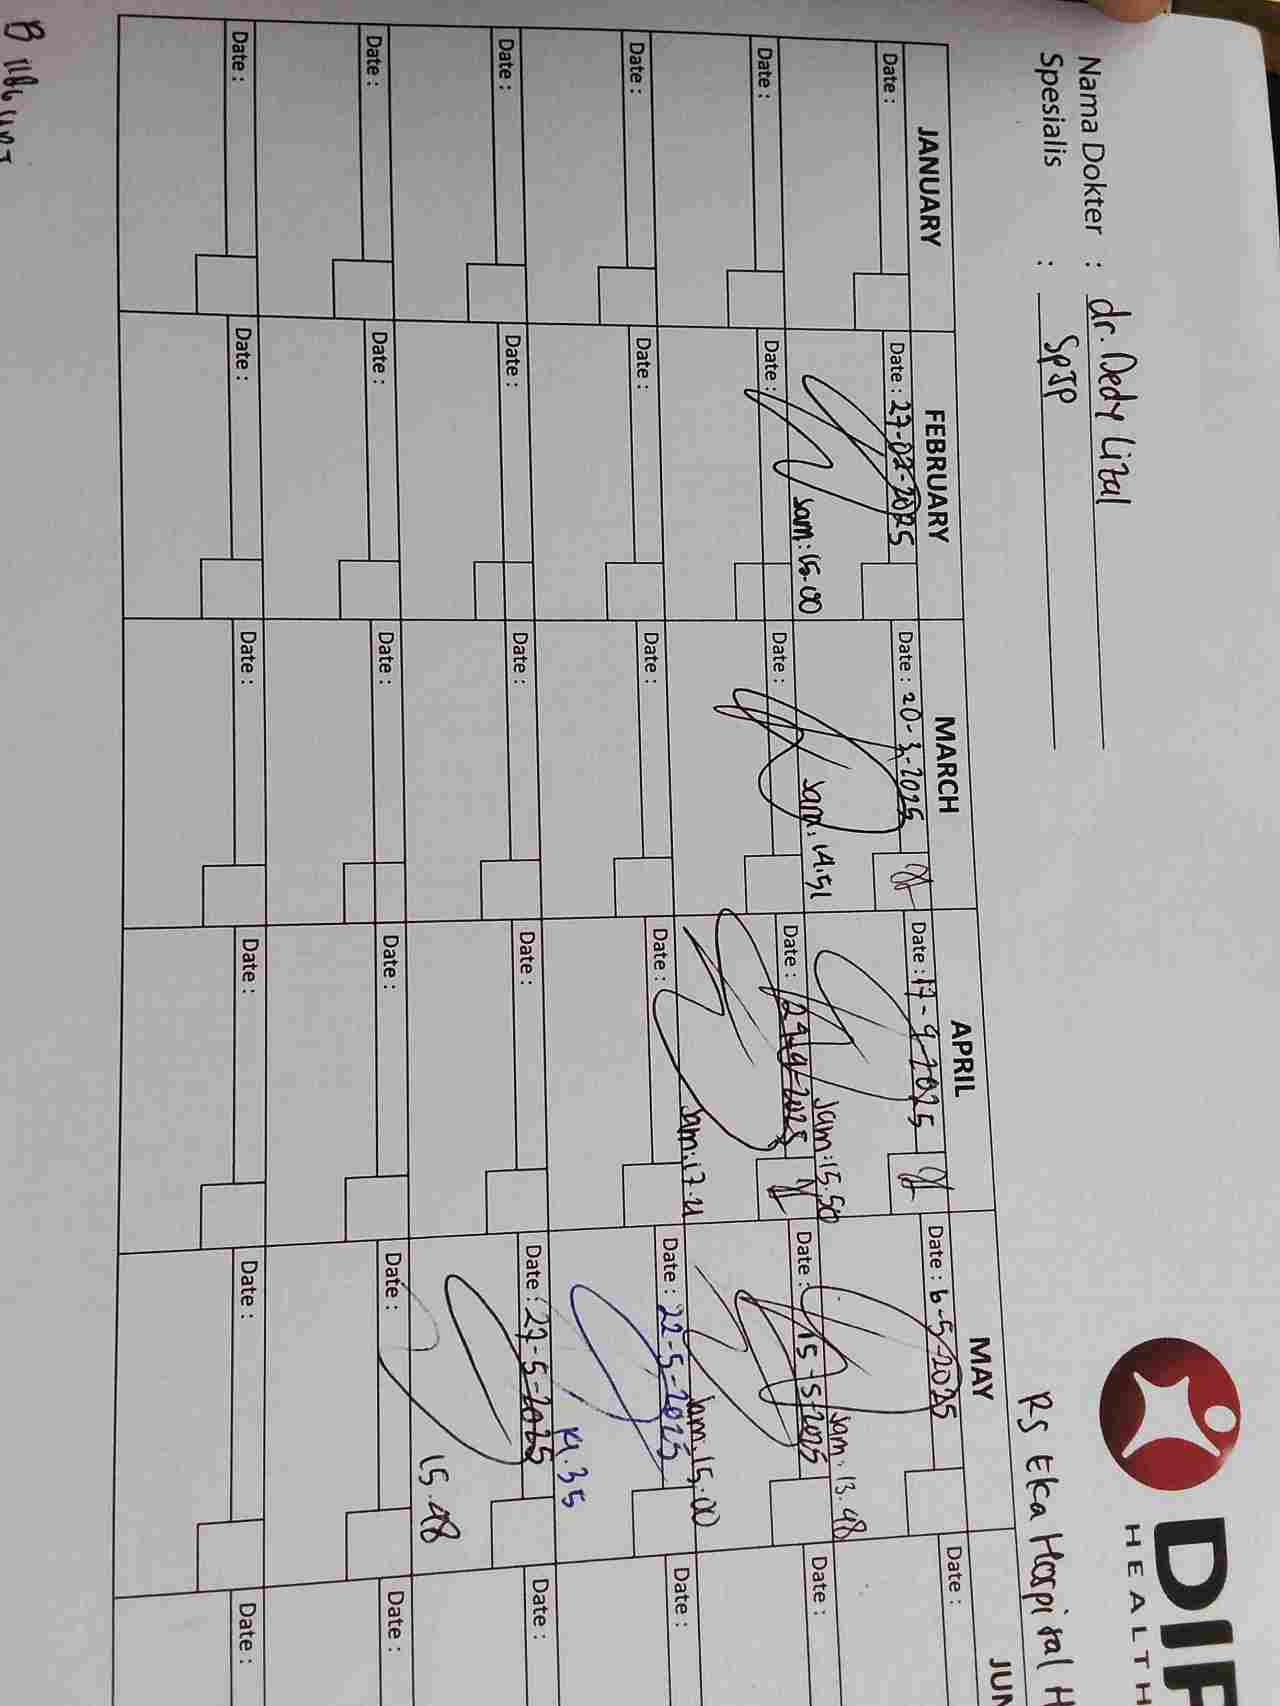 DIP
HEALTH
RS Eka Hospital H
Nama Dokter : dr. Dedy Lizal
Spesialis : SpJP
JANUARY FEBRUARY MARCH APRIL MAY JUN
Date : Date : 27-02-2025 Date : 20-3-2025 Date : 17-4-2025 Date : 6-5-2025 Date :
Jam : 15.00 Jam : 14.51 Jam : 15.50 Jam : 13.48
Date : Date : Date : Date : 24-4-2025 Date : 15-5-2025 Date :
Jam : 17.21 Jam. 15.00
Date : Date : Date : Date : Date : 22-5-2025 Date :
14.35
Date : Date : Date : Date : Date : 27-5-2025 Date :
15.48
Date : Date : Date : Date : Date : Date :
Date : Date : Date : Date : Date : Date :